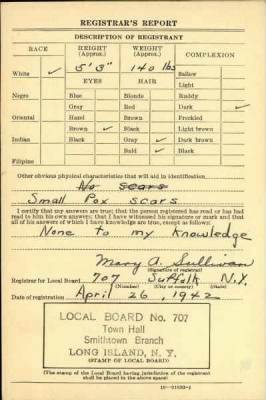 REGISTRAR'S REPORT
DESCRIPTION OF REGISTRANT
RACE HEIGHT (Approx.) WEIGHT (Approx.) COMPLEXION
5' 3" 140 lbs
White ✓ Sallow
EYES HAIR Light
Negro Blue Blonde Ruddy
Gray Red Dark ✓
Oriental Hazel Brown Freckled
Brown ✓ Black Light brown
Indian Black Gray ✓ Dark brown
Bald ✓ Black
Filipino
Other obvious physical characteristics that will aid in identification
No scars
Small Pox scars
I certify that my answers are true; that the person registered has read or has had
read to him his own answers; that I have witnessed his signature or mark and that
all of his answers of which I have knowledge are true, except as follows:
None to my Knowledge
Mary A. Sullivan
(Signature of registrar)
Registrar for Local Board 707 Suffolk N.Y.
(Number) (City or county) (State)
Date of registration April 26 1942
LOCAL BOARD No. 707
Town Hall
Smithtown Branch
LONG ISLAND, N. Y.
(STAMP OF LOCAL BOARD)
(The stamp of the Local Board having jurisdiction of the registrant
shall be placed in the above space)